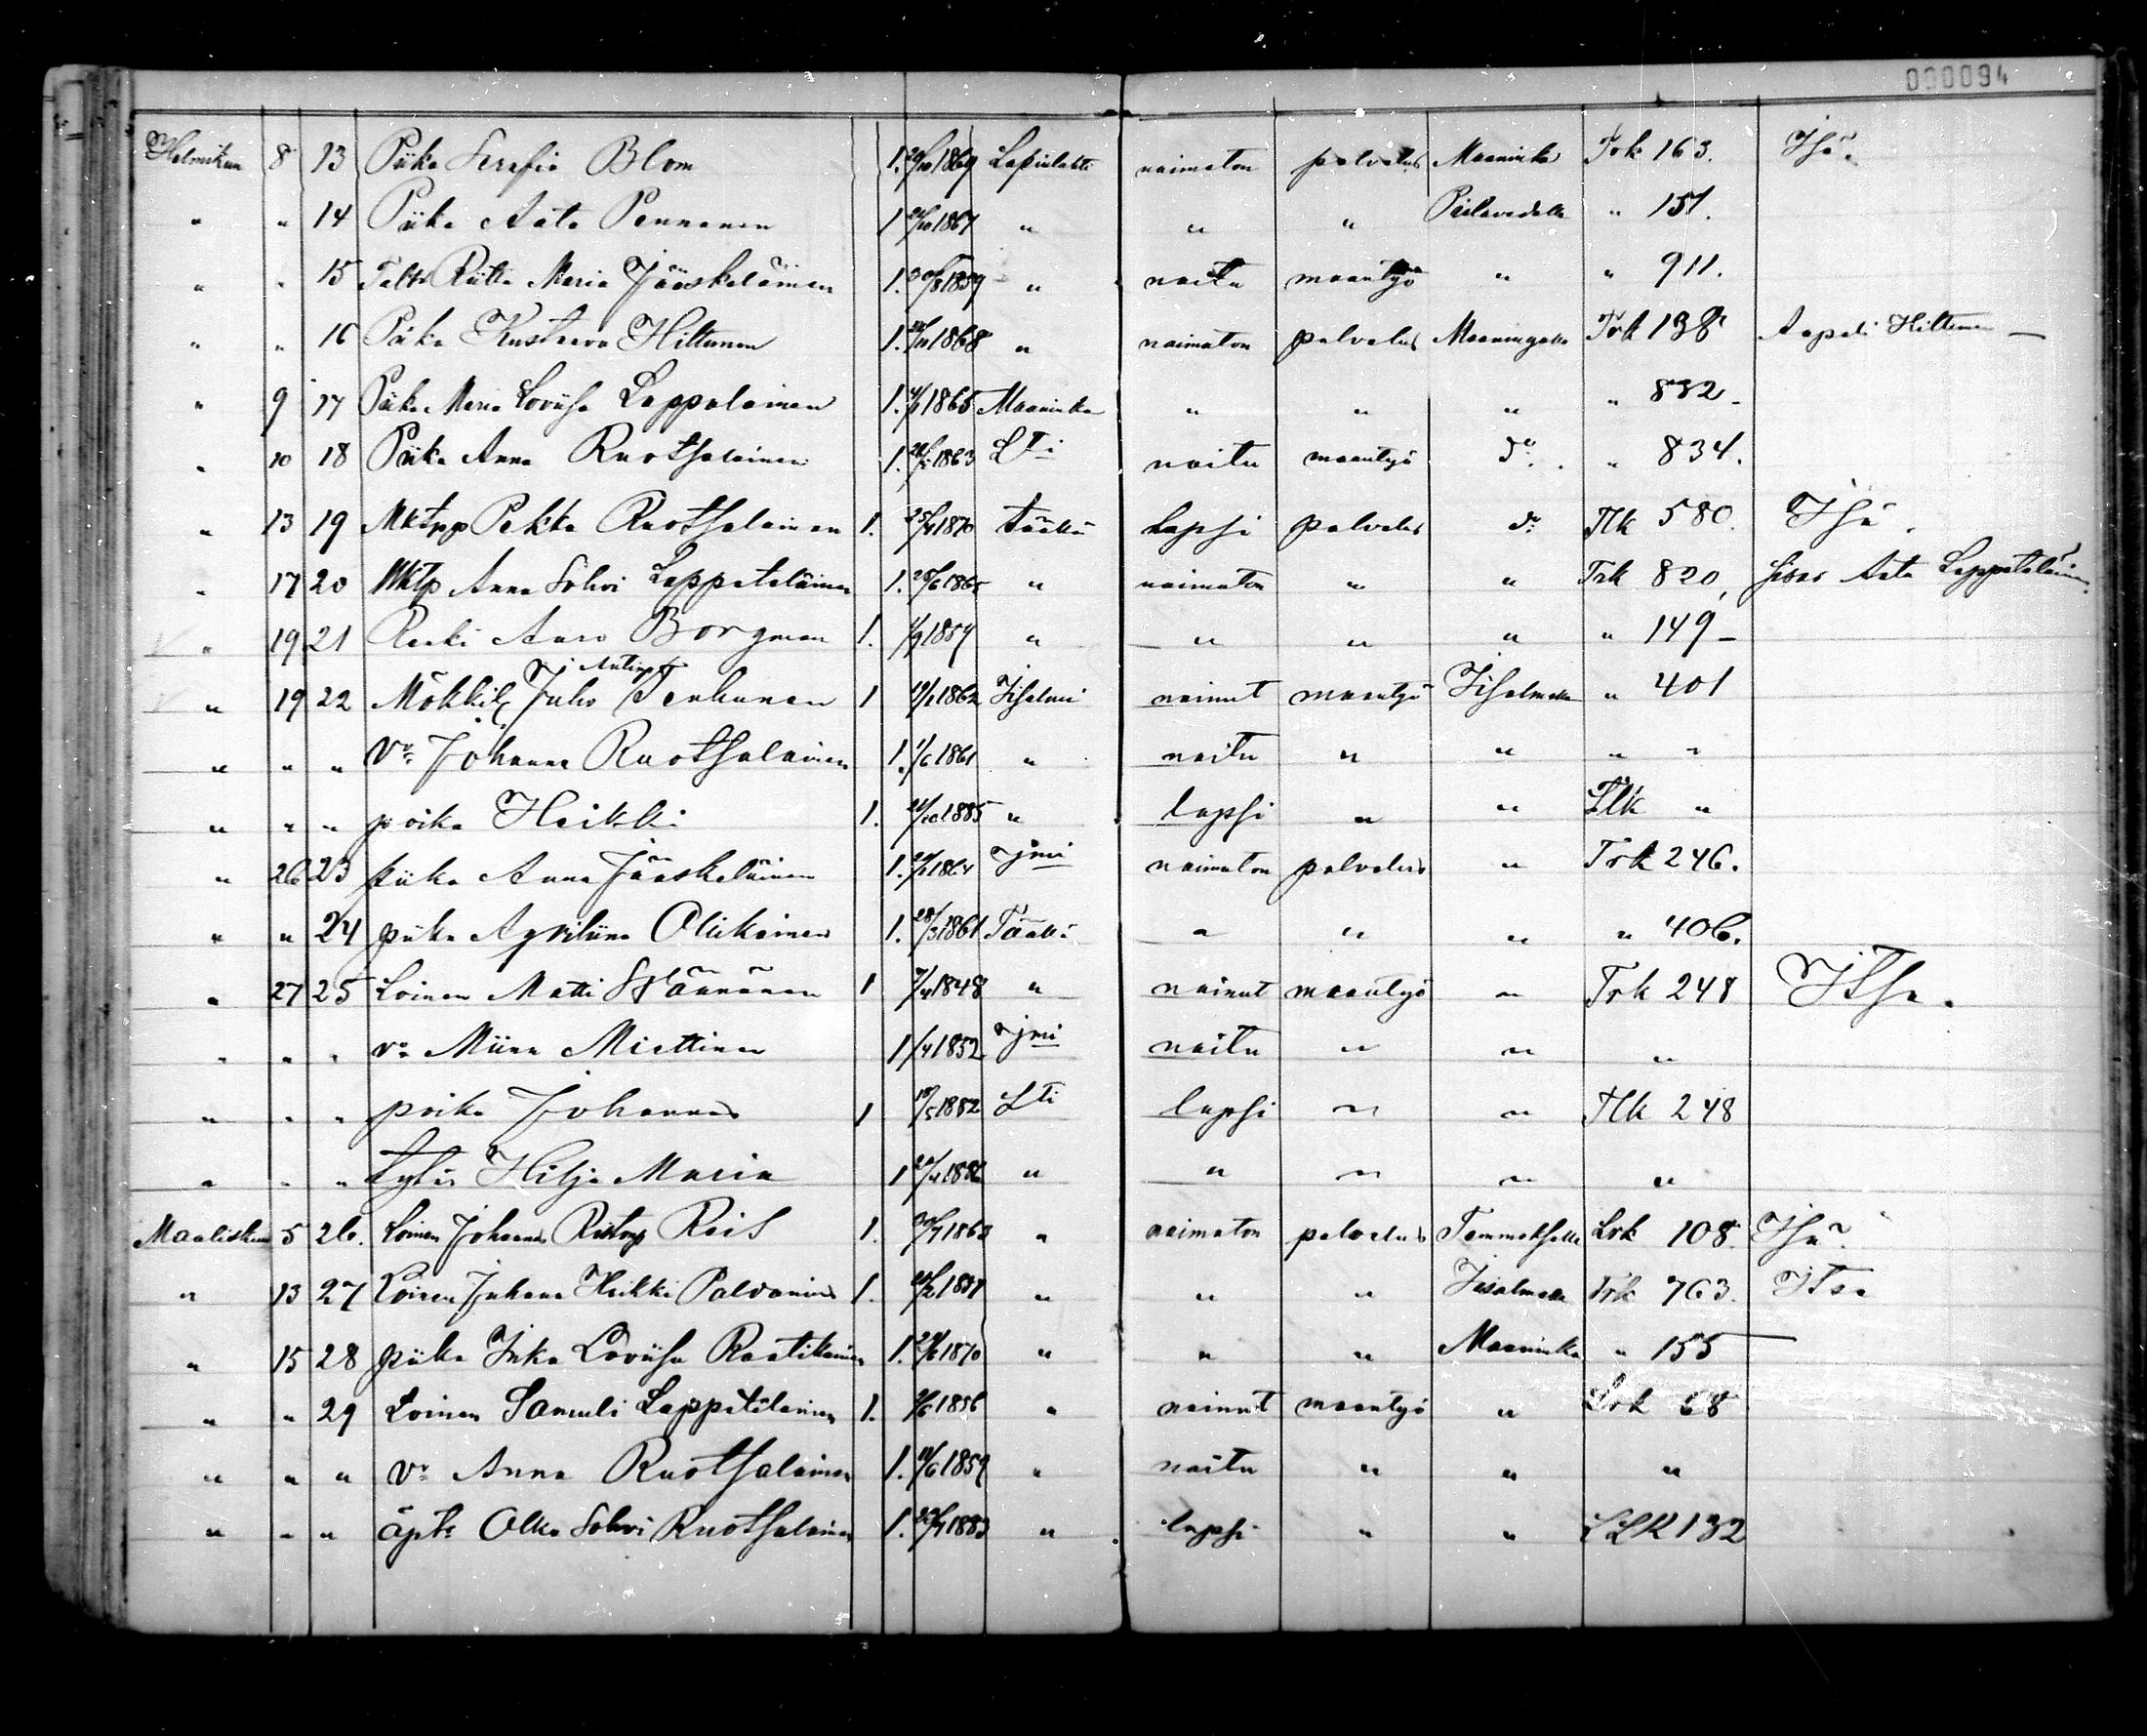 000094
Helmikuu 8 13 Piika Serafia Blom 1. 29/10 1869 Lapinlahti naimaton palvelus Maaninka Trk 163. Itsä.
" " 14 Piika Aata Pennanen 1 21/10 1867 " " " Pielavedelle " 151.
" " 15 Talts Riitta Maria Jääskeläinen 1. 30/8 1859 " naitu maantyö " " 911.
" " 16 Piika Kustaava Hiltunen 1. /11 1868 " naimaton palvelus Maaningalle Trk 138 Aapeli Hiltunen —
" 9 17 Piika Maria Loviisa Lappalainen 1. 1865 Maaninka " " " " 832 –
" 10 18 Piika Anna Ruotsalainen 1. 1863 Lti naitu maantyö do. " 834.
" 13 19 Mktpp Pekka Ruotsalainen 1. 25/4 1870 täällä lapsi palvelus do. Tlk 580. Itsä.
" 17 20 Mktp Anna Sohvi Lappeteläinen 1. 25/6 1865 " naimaton " " Trk 820, sisar Aata Lappeteläinen
" 19 21 Renki Aaro Borgman 1. 1/9 1859 " " " " " 149 –
" 19 22 Mökkil. Juho Antinp Tenhunen 1 1862 Iisalmi nainut maantyö Iisalmelle " 401
" " " vo Johanna Ruotsalainen 1. 1/6 1861 " naitu " " " "
" " " poika Heikki 1. 21/10 1885 " lapsi " " Tlk "
" 26 23 piika Anna Jääskeläinen 1. 1864 Ijmi naimaton palvelus " Trk 246.
" " 24 piika Agviliina Olikainen 1. 28/3 1861 Täällä " " " " 406.
" 27 25 Loinen Matti Wäänänen 1 7/4 1848 " nainut maantyö " Trk 248 Itse.
" " " vo Miina Miettinen 1 /4 1852 Ijmi naitu " " "
" " " poika Johannes 1 18/5 1882 Lti lapsi " " Tlk 248
" " " tytär Hilja Maria 1 1886 " " " " "
Maaliskuu 5 26. Loinen Johannes Ristonp Reis 1. 30/7 1863 " naimaton palvelus Tammelsalle Lrk 108. Itsä.
" 13 27 Loinen Juhana Heikki Palvanin 1. " " " Iisalmelle Trk 763. Itse
" 15 28 piika Inka Loviisa Raatikainen 1. 1870 " " " Maaninka " 155 —
" " 29 Loinen Samuli Lappeteläinen 1. 2/6 1856 " nainut maantyö " Lrk 68
" " " vo Anna Ruotsalainen 1. 11/6 1859 " naitu " " "
" " " äpte Olka Sohvi Ruotsalainen 1. 22/7 1883 " lapsi " " LLK 132